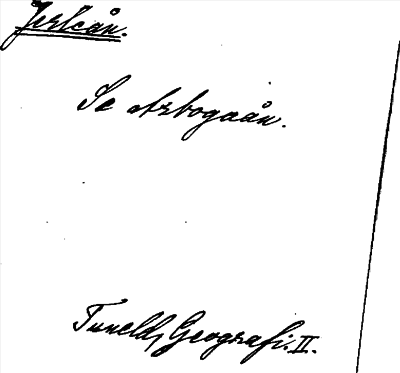 Jerleån.
Se Arbogaån.
Tuneld, Geografi. II.